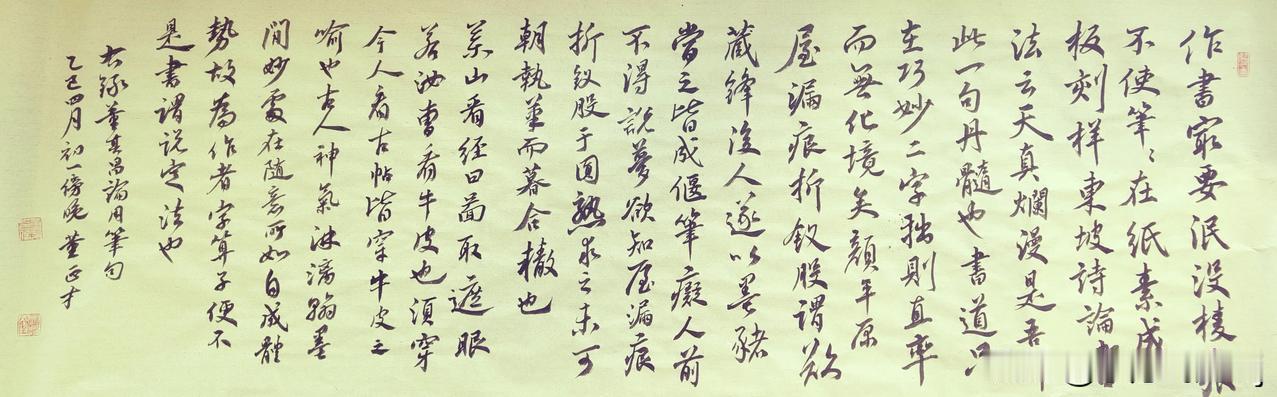 作書最要泯沒棱
不使筆〻在紙素成
板刻样東坡詩論
法云天真爛漫是吾
此一句丹髓也書道只
在巧妙二字拙則直率
而無化境矣顔平原
屋漏痕折釵股謂欲
藏鋒後人遂以墨豬
當之皆成偃筆癡人前
不得説夢欲知屋漏痕
折釵股于圓熟求之未可
朝執筆而暮合轍也
藥山看經曰啚取遮眼
若汝曹看牛皮也須穿
今人看古帖皆穿牛皮之
喻也古人神氣淋漓翰墨
間妙處在随意所如自成體
勢故為作者字算子便不
是書謂説定法也
右録董其昌論用筆句
乙巳四月初一傍晚 董正才